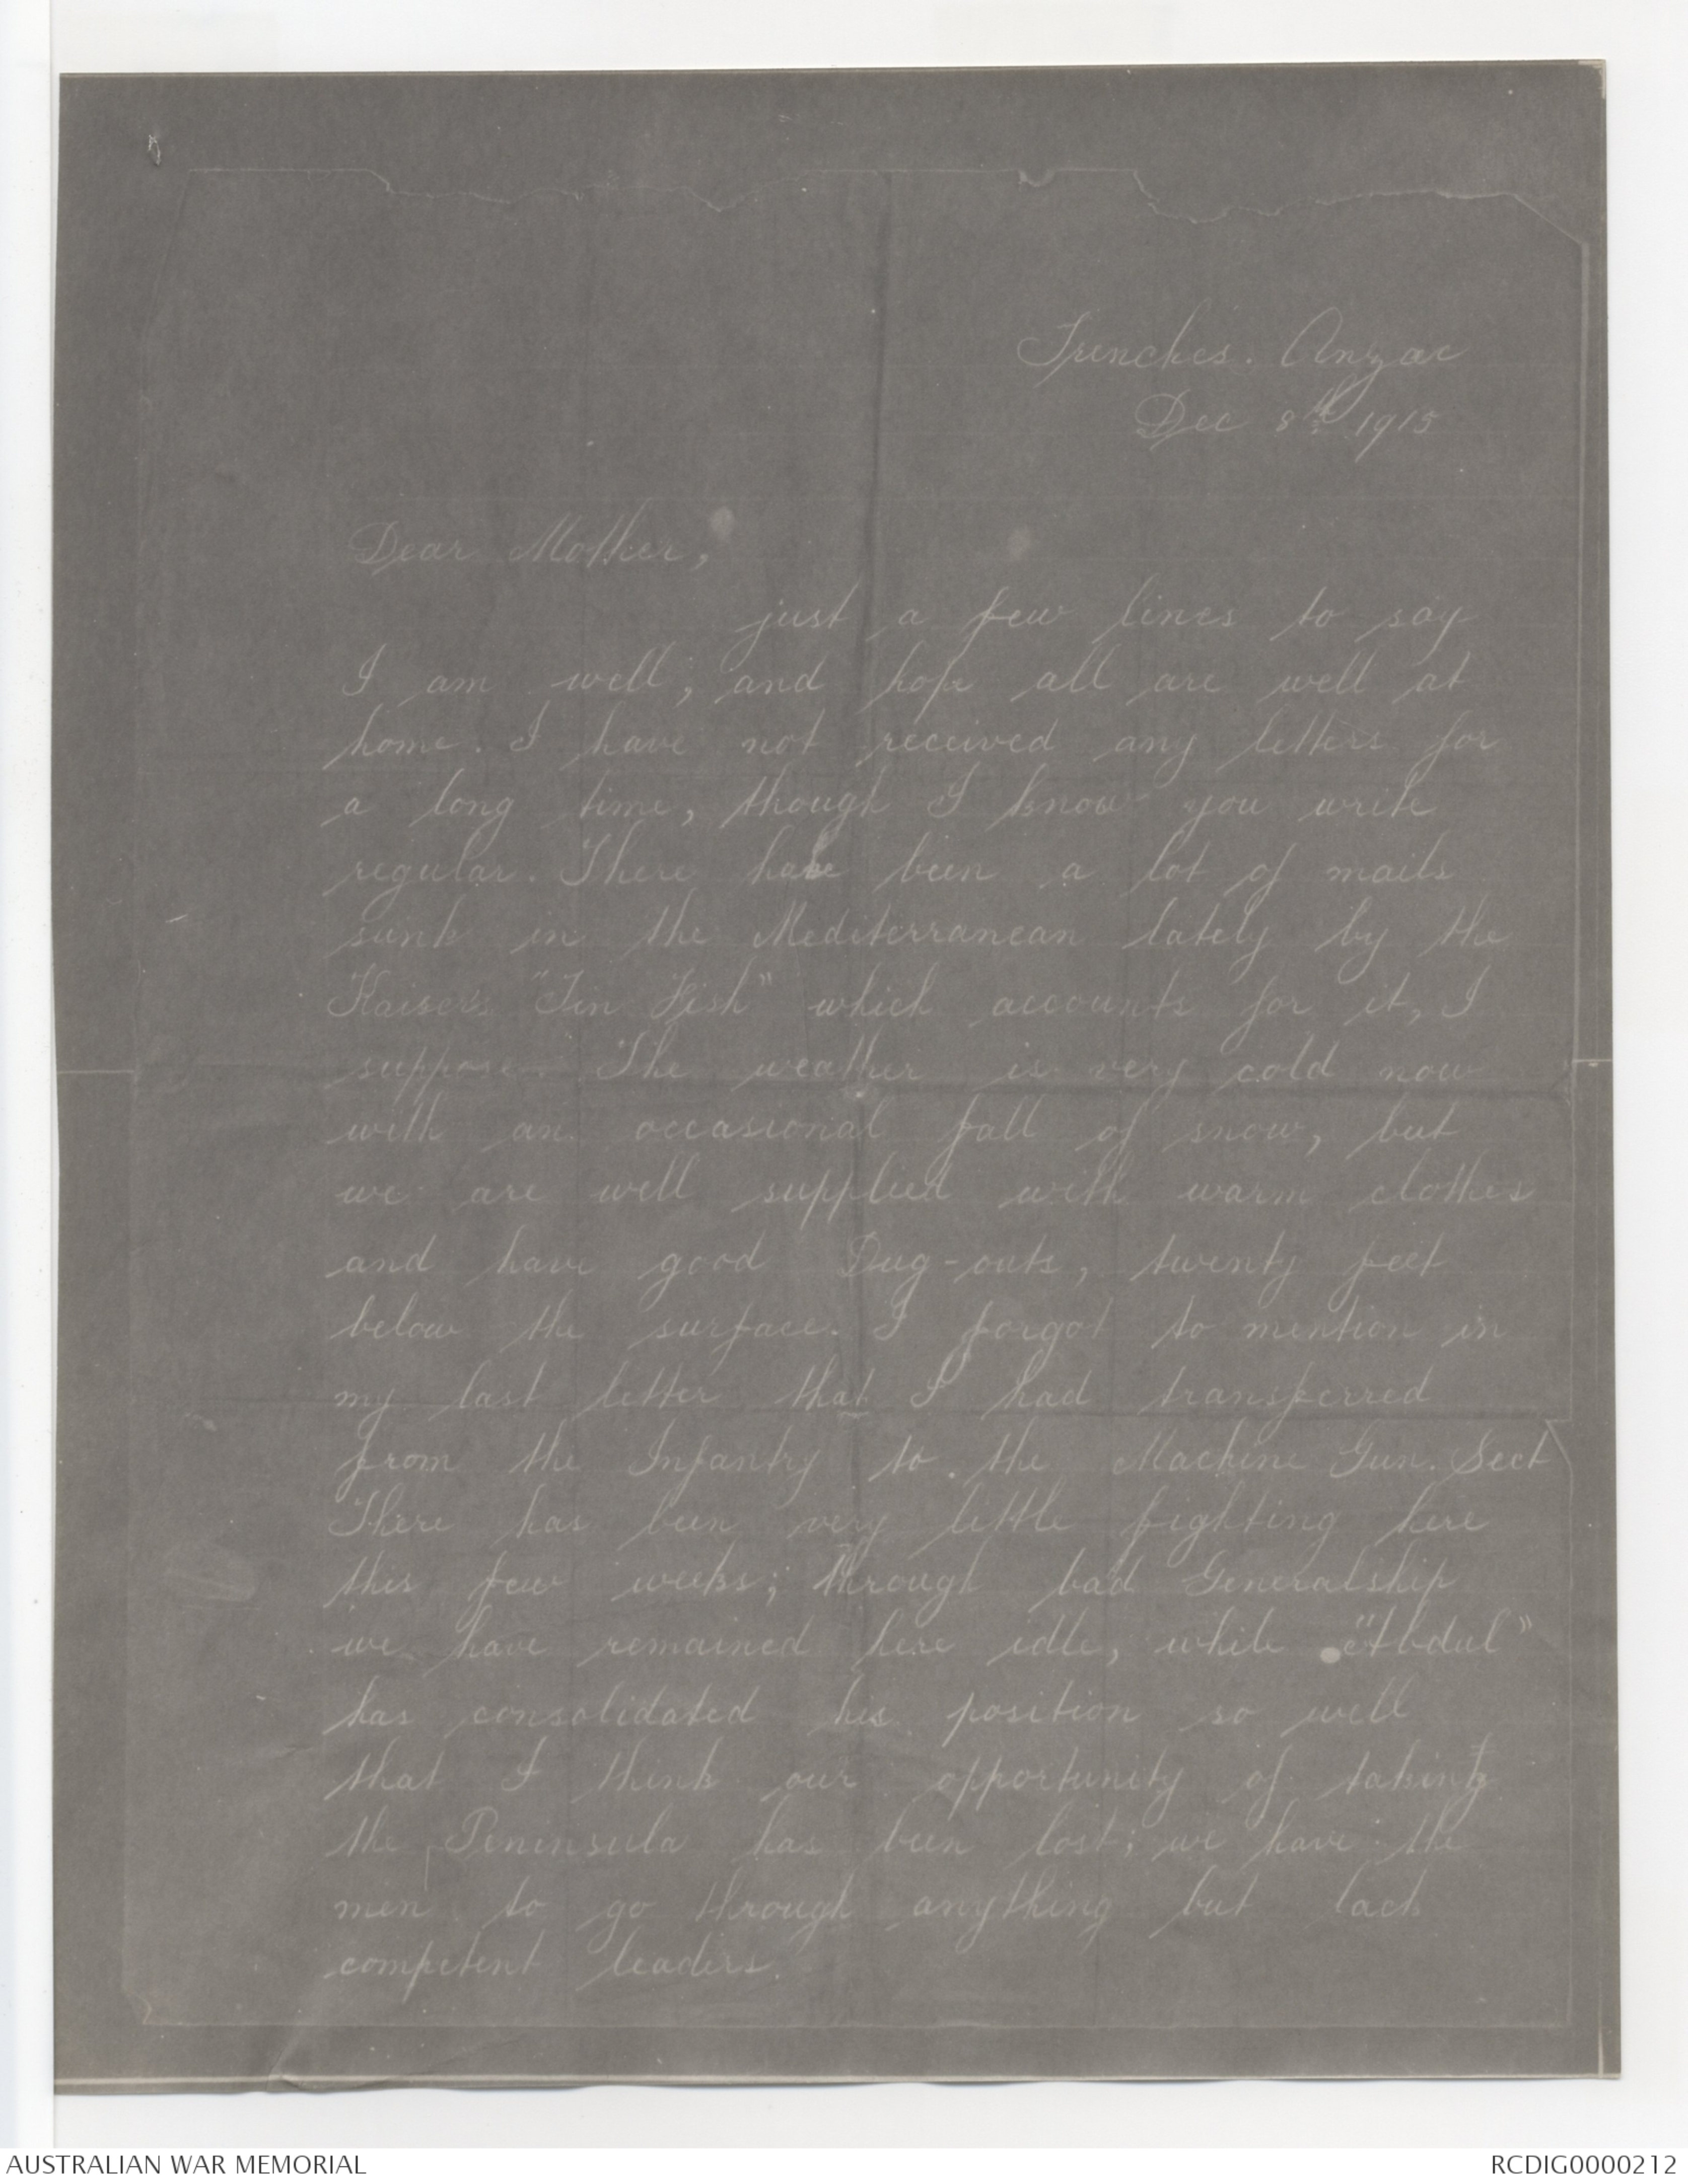 Trenches. Anzac
Dec 8th 1915
Dear Mother,
just a few lines to say
I am well, and hope all are well at
home. I have not received any letters for
a long time, though I know you write
regular. There have been a lot of mails
sunk in the Mediterranean lately by the
Kaiser's "Tin Fish" which accounts for it, I
suppose. The weather is very cold now
with an occasional fall of snow, but
we are well supplied with warm clothes
and have good Dug-outs, twenty feet
below the surface. I forgot to mention in
my last letter that I had transferred
from the Infantry to the Machine Gun. Sect
There has been very little fighting here
this few weeks; through bad Generalship
we have remained here idle, while "Abdul"
has consolidated his position so well
that I think our opportunity of taking
the Peninsula has been lost; we have the
men to go through anything but lack
competent leaders.
AUSTRALIAN WAR MEMORIAL
RCDIG0000212